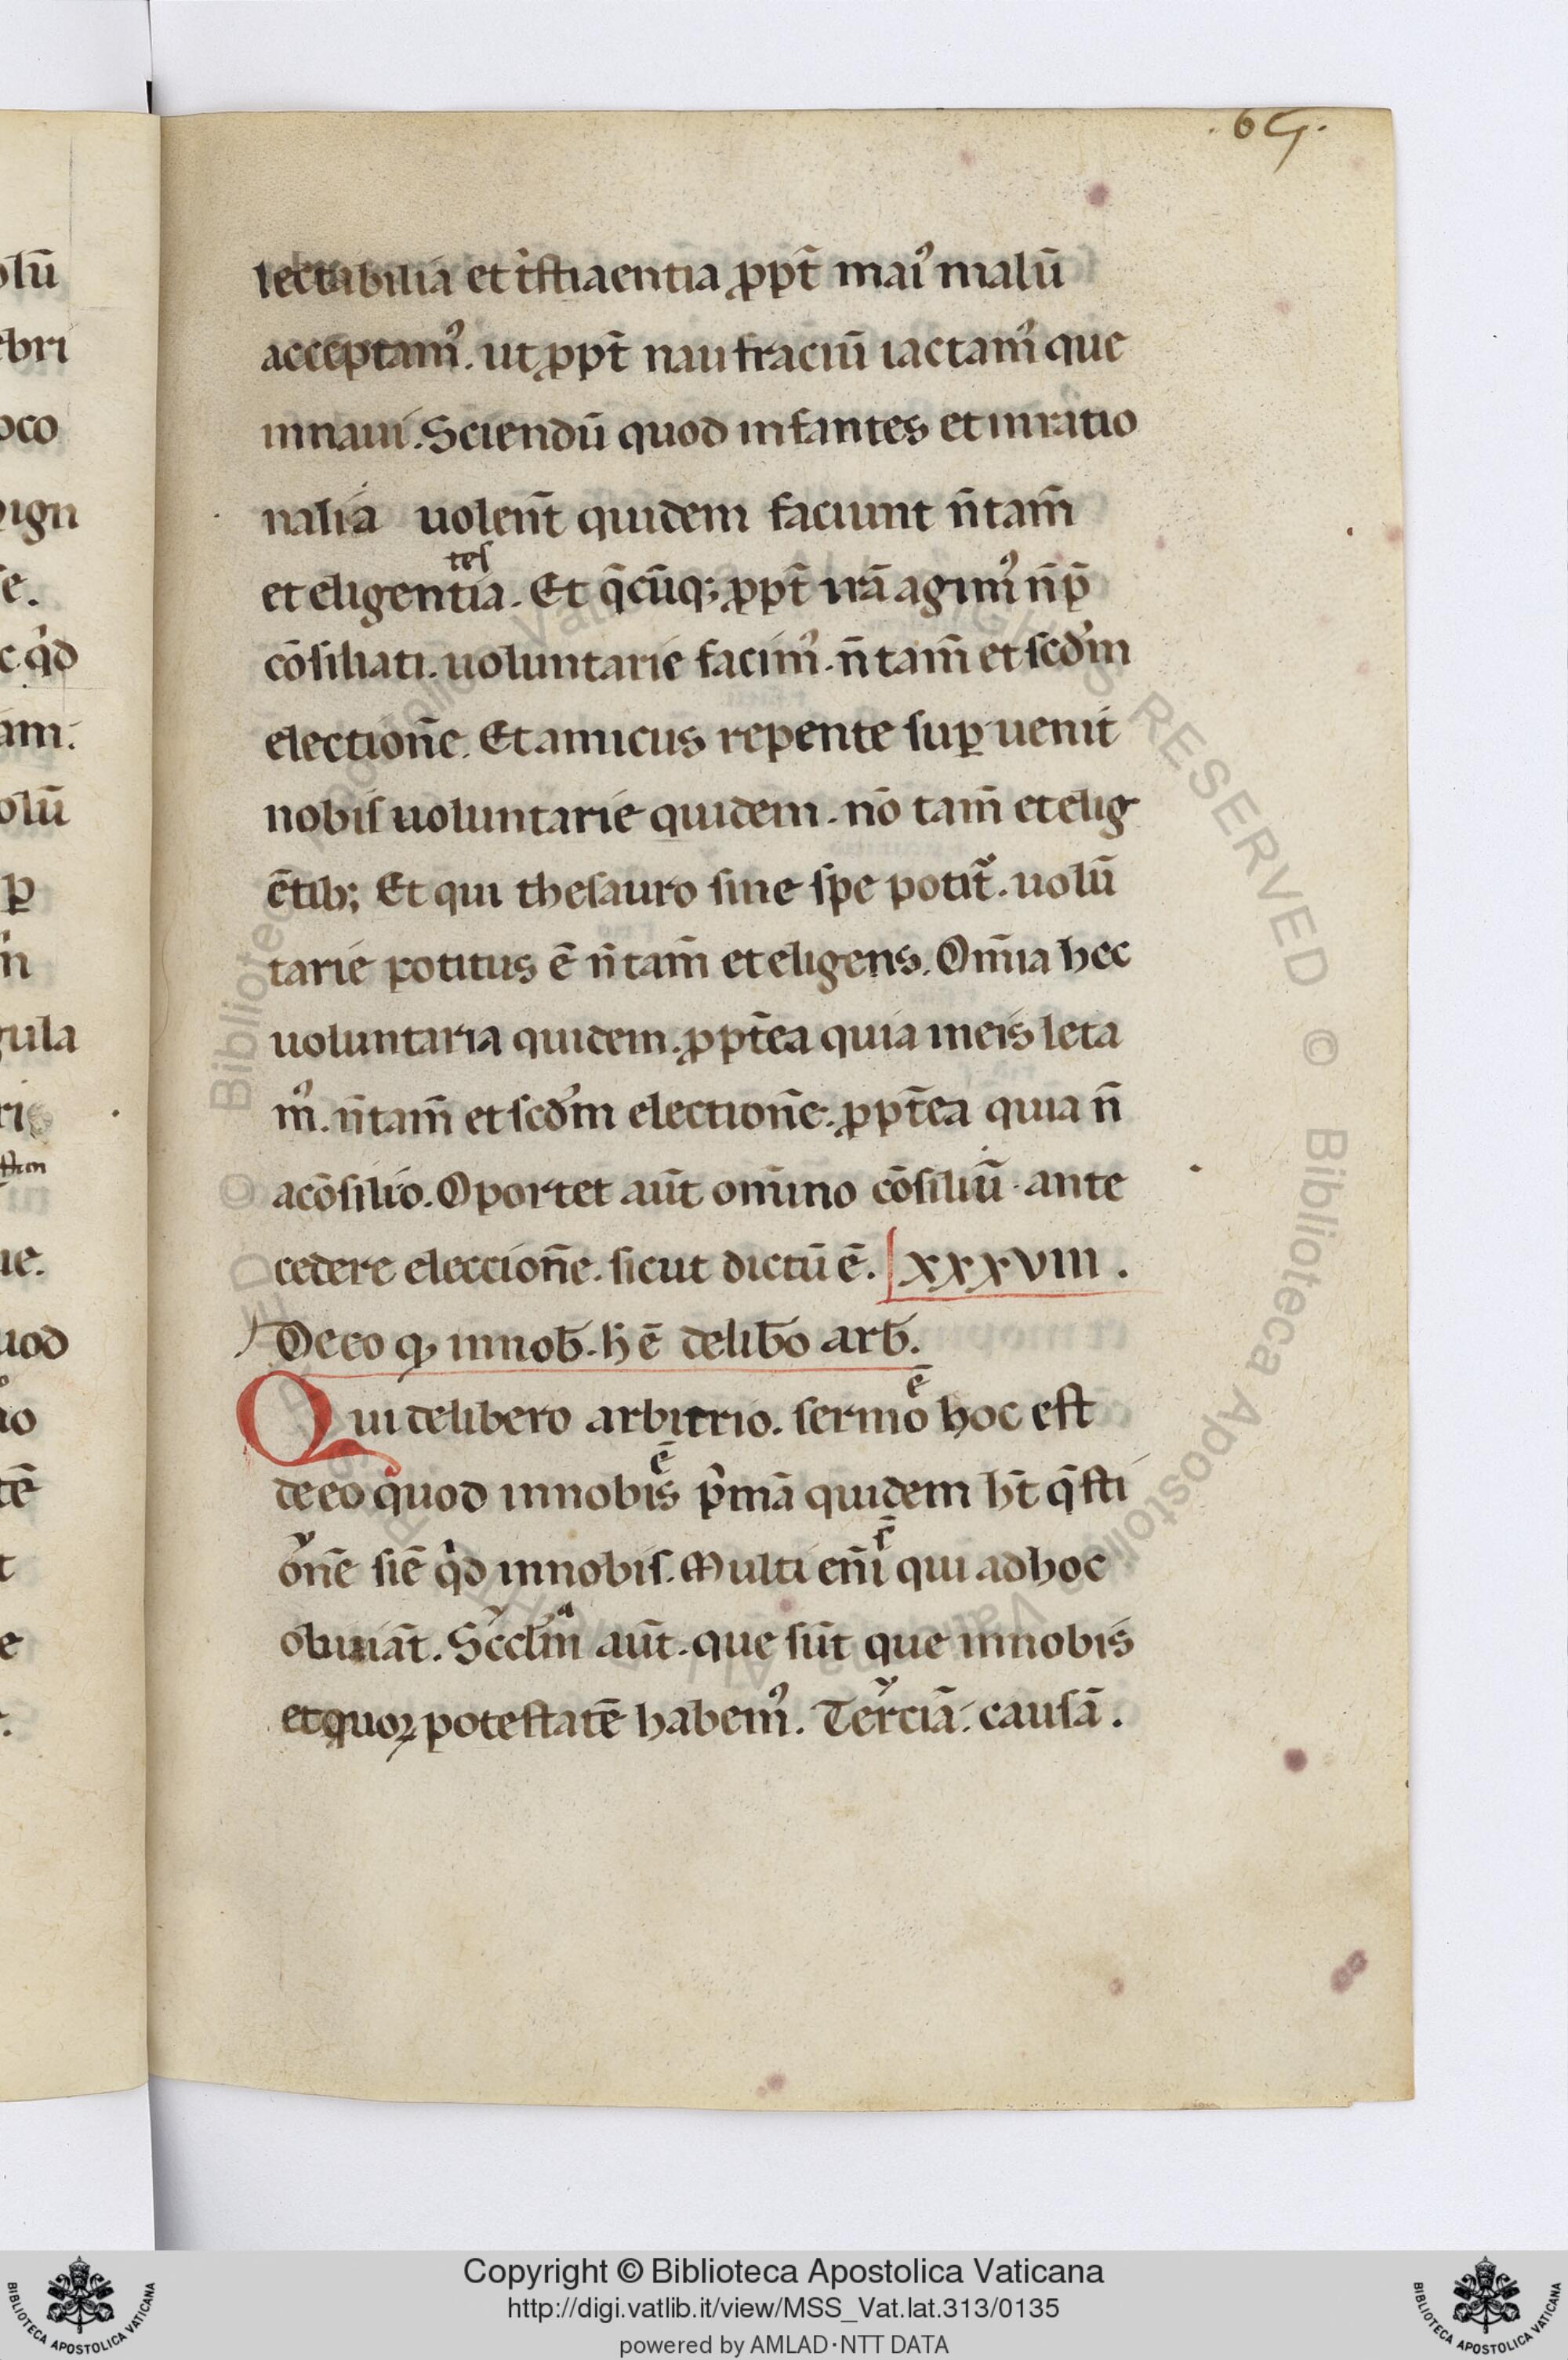 .69.
lectabilia et t̄ſtiaentia ꝓpt̄ mai᾿ malū
acceptam᾿. ut ꝓpt̄ naufraciū iactam᾿ que
innaui. Sciendū quod infantes et inratio
nalia uolen̄t quidem faciunt n̄ tam̄
teſ
et eligentia. Et q̄cūq; ꝓpt̄ irā agim᾿ n̄ p̄
cōſiliati. uoluntarie facim᾿. n̄ tam̄ et ſcd̓m
election̄e. Et amicus repente ſuꝑ uenit
nobiſ uoluntarie quidem. nō tam̄ et elig
ētib; Et qui theſauro ſine ſpe potit̄. uolū
tarie potitus ē n̄ tam̄ et eligens. Om̄ia hec
uoluntaria quidem. ꝓpt̄ea quia in eis leta
m᾿. n̄ tam̄ et ſcd̓m election̄e. ꝓpt̄ea quia n̄
acōſilio. Oportet aūt om̄ino cōſiliū. ante
cedere eleccion̄e. ſicut dictū ē. xxxviii.
De eo ꝙ innob̄. h̄ ē delib̄o arb̄.
ē
Qui delibero arbitrio. ſermo hoc eſt
ē
de eo quod innobis p̓mā quidem h̄t q̄ſti
ē
ōne ſiē q̓d innobiſ. Multi en̄i qui ad hoc
obuiāt. Sccdm̄ aūt. que ſūt que innobis
et quoꝝ poteſtatē habem᾿. Terciā. cauſā.
olū
ebri
oco
ign
e.
c q̓d
am.
olū
ꝑ
n̓
gula
ri
ue.
uod
io
tē
t
e
Copyright © Biblioteca Apostolica Vaticana
http://digi.vatlib.it/view/MSS_Vat.lat.313/0135
powered by AMLAD·NTT DATA
BIBLIOTECA APOSTOLICA VATICANA
BIBLIOTECA APOSTOLICA VATICANA